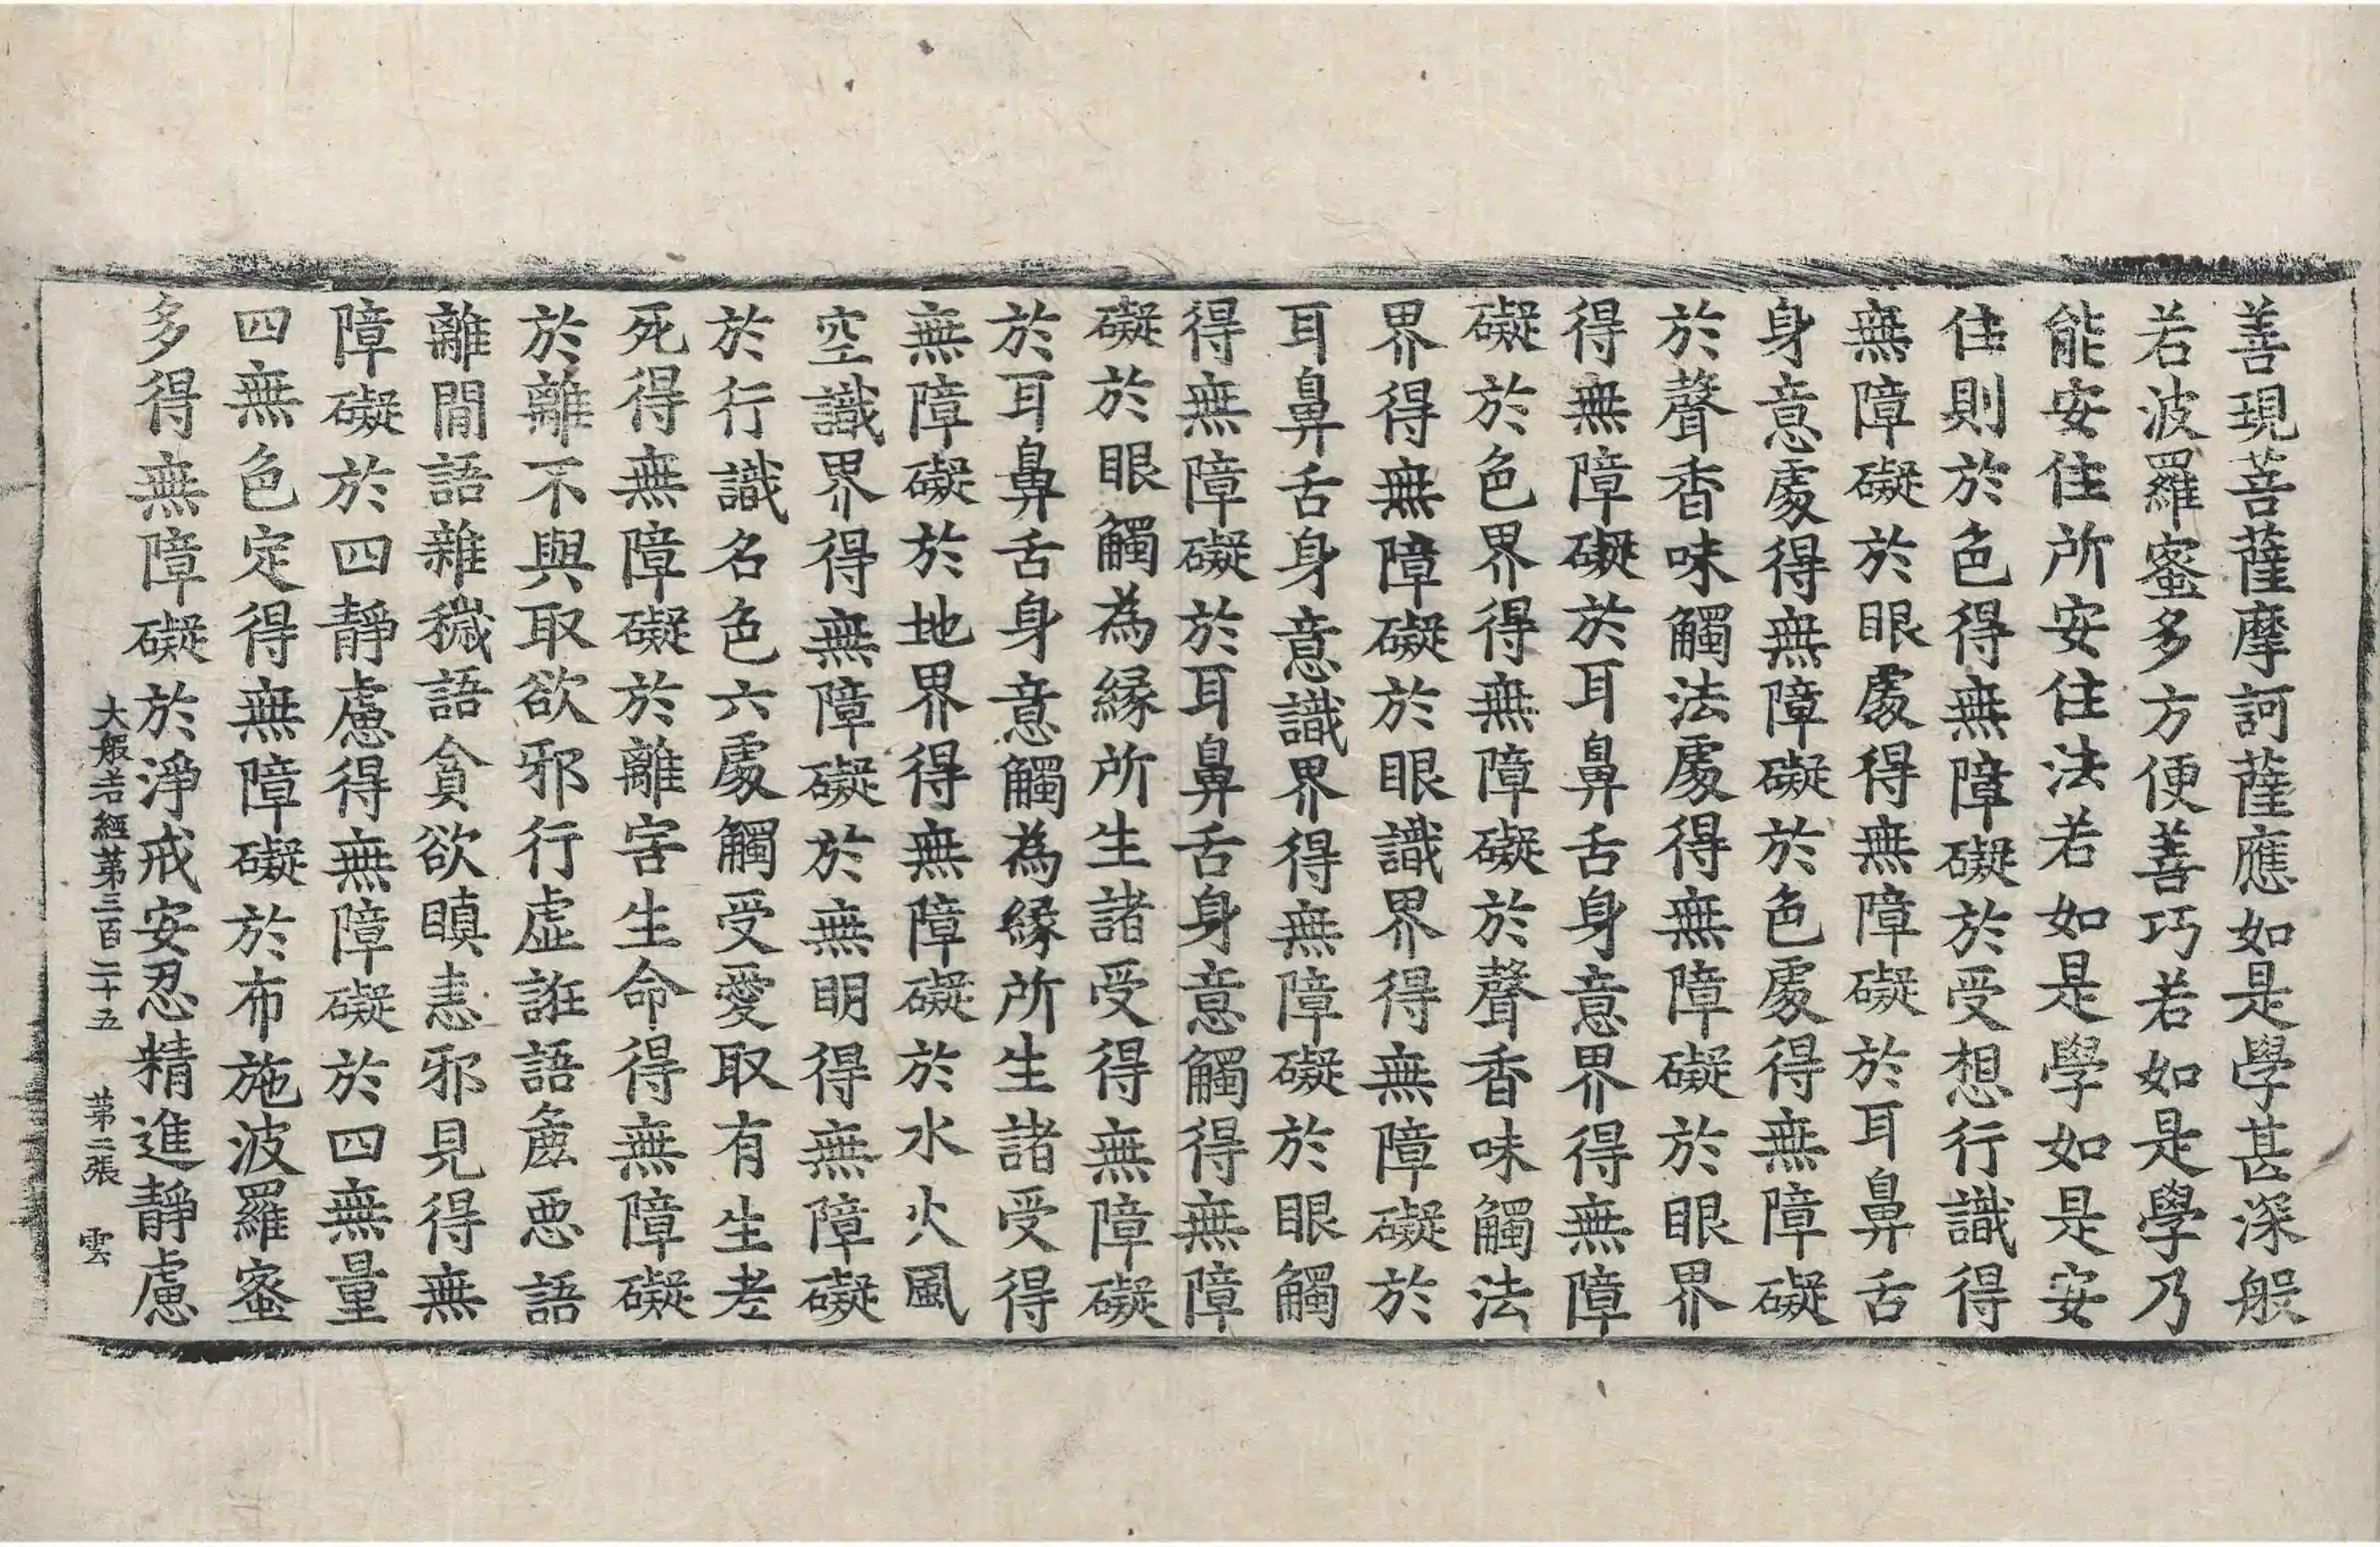 善現菩薩摩訶薩應如是學甚深般
若波羅蜜多方便善巧若如是學乃
能安住所安住法若如是學如是安
住則於色得無障礙於受想行識得
無障礙於眼處得無障礙於耳鼻舌
身意處得無障礙於色處得無障礙
於聲香味觸法處得無障礙於眼界
得無障礙於耳鼻舌身意界得無障
礙於色界得無障礙於聲香味觸法
界得無障礙於眼識界得無障礙於
耳鼻舌身意識界得無障礙於眼觸
得無障礙於耳鼻舌身意觸得無障
礙於眼觸為緣所生諸受得無障礙
於耳鼻舌身意觸為緣所生諸受得
無障礙於地界得無障礙於水火風
空識界得無障礙於無明得無障礙
於行識名色六處觸受愛取有生老
死得無障礙於離害生命得無障礙
於離不與取欲邪行虛誑語麁惡語
離間語雜穢語貪欲瞋恚邪見得無
障礙於四靜慮得無障礙於四無量
四無色定得無障礙於布施波羅蜜
多得無障礙於淨戒安忍精進靜慮
大般若經第三百二十五 第二張 雲